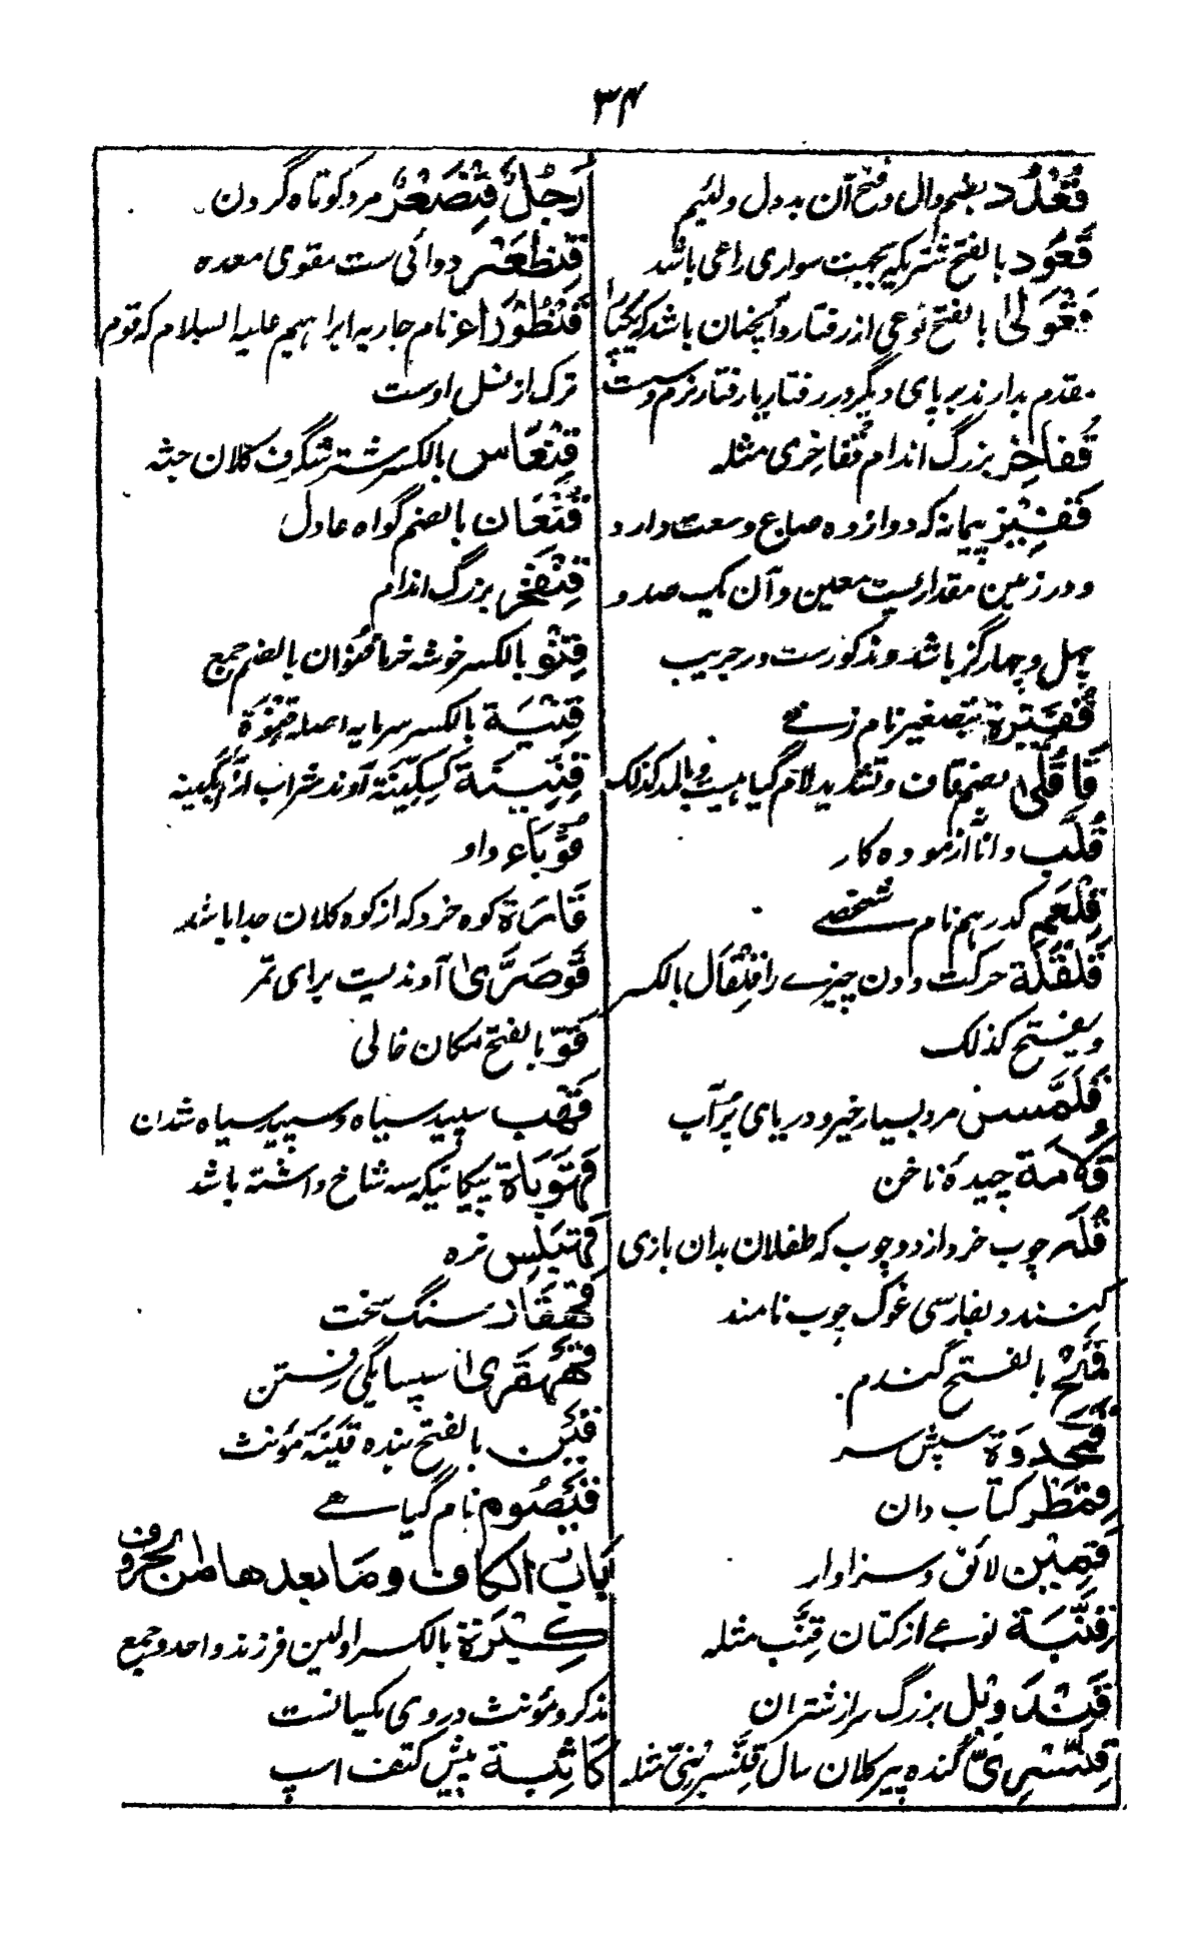 ۳۴
قُعْدُد بضم دال و فتح آن بد دل و لئیم
قَعُود بالفتح شتریکه بجهت سواری راعی باشد
قَعْوَلیٰ بالفتح نوعی از رفتار و آنچنان باشد که یکپا را
مقدم بدارند بر پای دیگر در رفتار یا رفتار نرم و سست
قُفاخِر بزرگ اندام قُفاخِری مثله
قَفِیْز پیمانه که دوازده صاع وسعت دارد
و در زمین مقداریست معین و آن یک صد و
چهل و چهار گز باشد و مذکورست در جریب
قُفَیْرَة بتصغیر نام زنے
قَاقُلّیٰ بضم قاف و تشدید لام گیاهیست و بالمد کذلک
قُلَّب دانا آزموده کار
قِلْعَم کدرهم نام شخصے
قَلْقَلَة حرکت دادن چیزے را قِلْقَال بالکسر
و یفتح کذلک
قَلَمَّس مرد بسیار خیر و دریای پُر آب
قُلَامَة چیدهٔ ناخن
قُلَه چوب خرد از دو چوب که طفلان بدان بازی
کنند و بفارسی غوک چوب نامند
قَمْح بالفتح گندم.
قَمَحْدُوَة سپش سر
قِمَطْر کتاب دان
قَمِیْن لائق و سزاوار
قِنَّبَة نوعے از کتان قِنَّب مثله
قَنْدَوِیْل بزرگ سر از شتران
قِنَّسْرِیّ گنده پیر کلان سال قِنَّسْرِیْنِیّ مثله
رَجُلٌ قِنْصَعْرٌ مرد کوتاه گردن
قِنْطَعْر دوائی ست مقوی معده
قَنْطُوْرَاء نام جاریه ابراهیم علیه السلام که قوم
ترک از نسل اوست
قِنْعَاس بالکسر شتر شگرف کلان جثه
قُنْعَان بالضم گواه عادل
قِنْفَخْر بزرگ اندام
قِنْو بالکسر خوشه خرما قُنْوَان بالضم جمع
قِنْیَة بالکسر سرمایه اصله قِنْوَة
قِنِّیْنَة کسِکِّیْنَة آوند شراب از آبگینه
قُوَّبَاء داد
قَارَة کوه خرد که از کوه کلان جدا باشد
قَوْصَرَّیٰ آوندیست برای تمر
قَوّ بالفتح مکان خالی
قَهْب سپید سیاه و سپید سیاه شدن
قَهْوَبَاة پیکانیکه سه شاخ داشته باشد
قَهْبَلِس نره
قَهْقَار سنگ سخت
قَهْقَریٰ سپسایگی رفتن
قَیْن بالفتح بنده قَیْنَة مؤنث
قَیْصُوم نام گیاهے
بَابُ الکاف وما بعدها من الحروف
کِبْرَة بالکسر اولین فرزند واحد و جمع
مذکر و مؤنث در وی یکسانست
کَاثِبَة پیش کتف اسپ